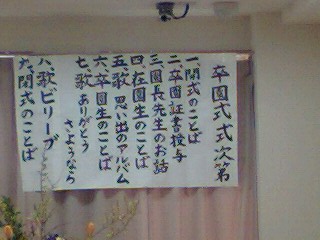 卒園式式次第
一、開式のことば
二、卒園証書授与
三、園長先生のお話
四、在園生のことば
五、歌 思い出のアルバム
六、卒園生のことば
七、歌 ありがとう
さようなら
八、歌 ビリーブ
九、閉式のことば